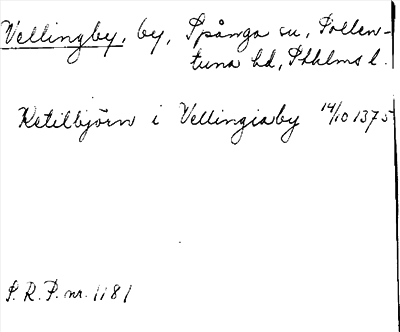 Vellingby, by, Spånga sn, Sollen-
tuna hd, Sthlms l.
Ketilbjörn i Vellingiaby 14/10 1375
S. R. P. nr. 1181